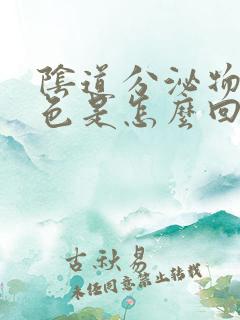 陰道分泌物
色是怎麼回
古秋易
未经同意禁止转载